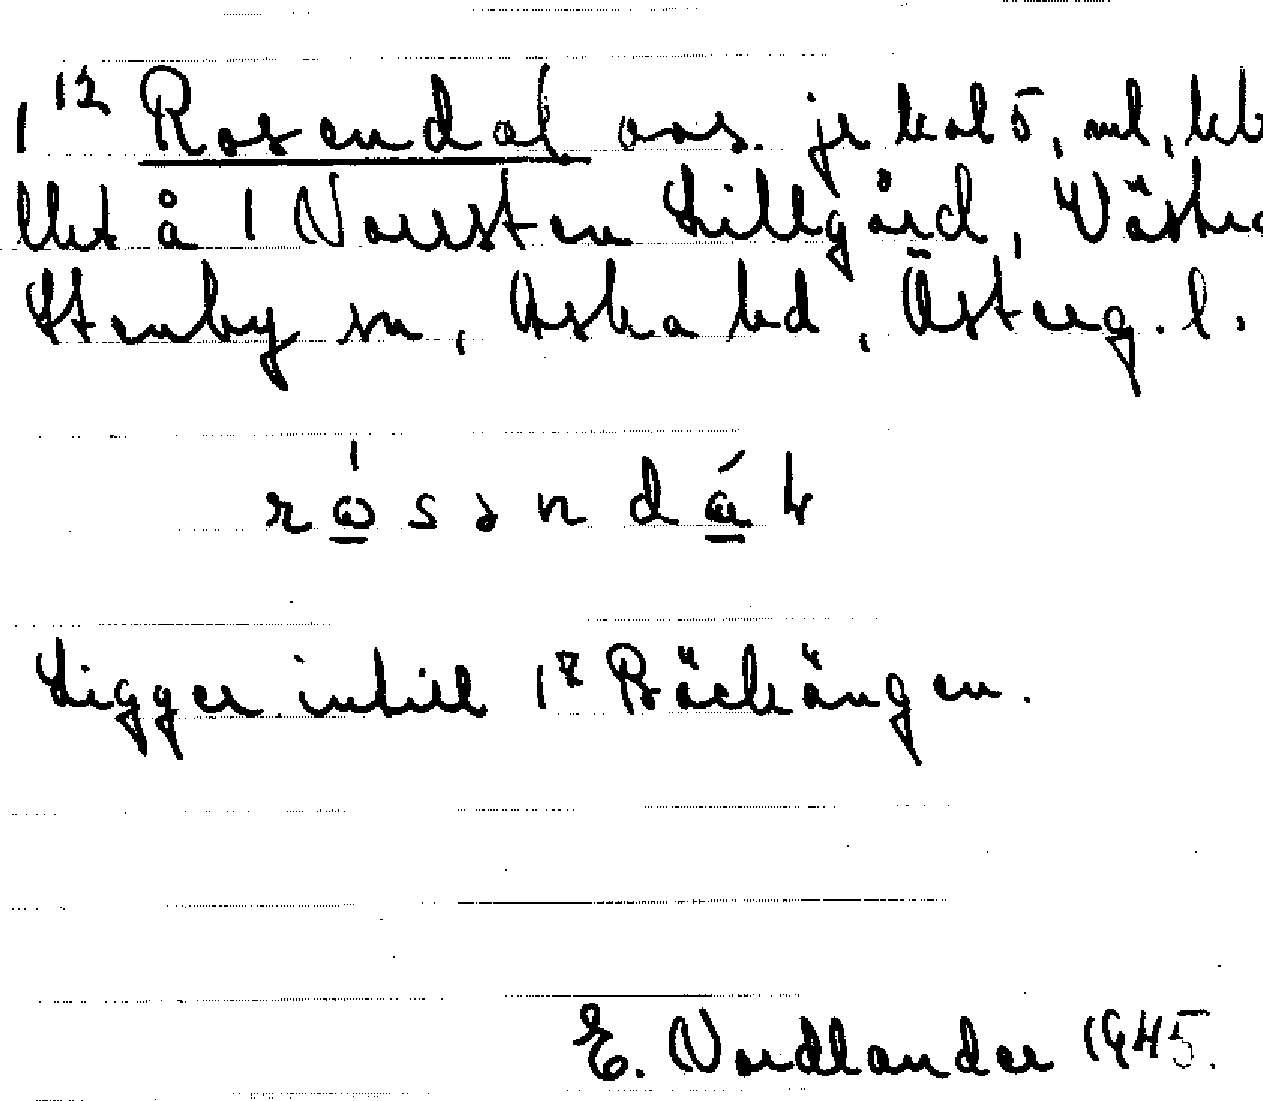 1¹² Rosendal avs. je kal 5, ml, kb
llet å 1 Norrsten Lillgård, Västra
Stenby sn, Aska hd, Österg. l.
rósəndá
Ligger intill 1⁷ Bäckängen.
E. Nordlander 1945.